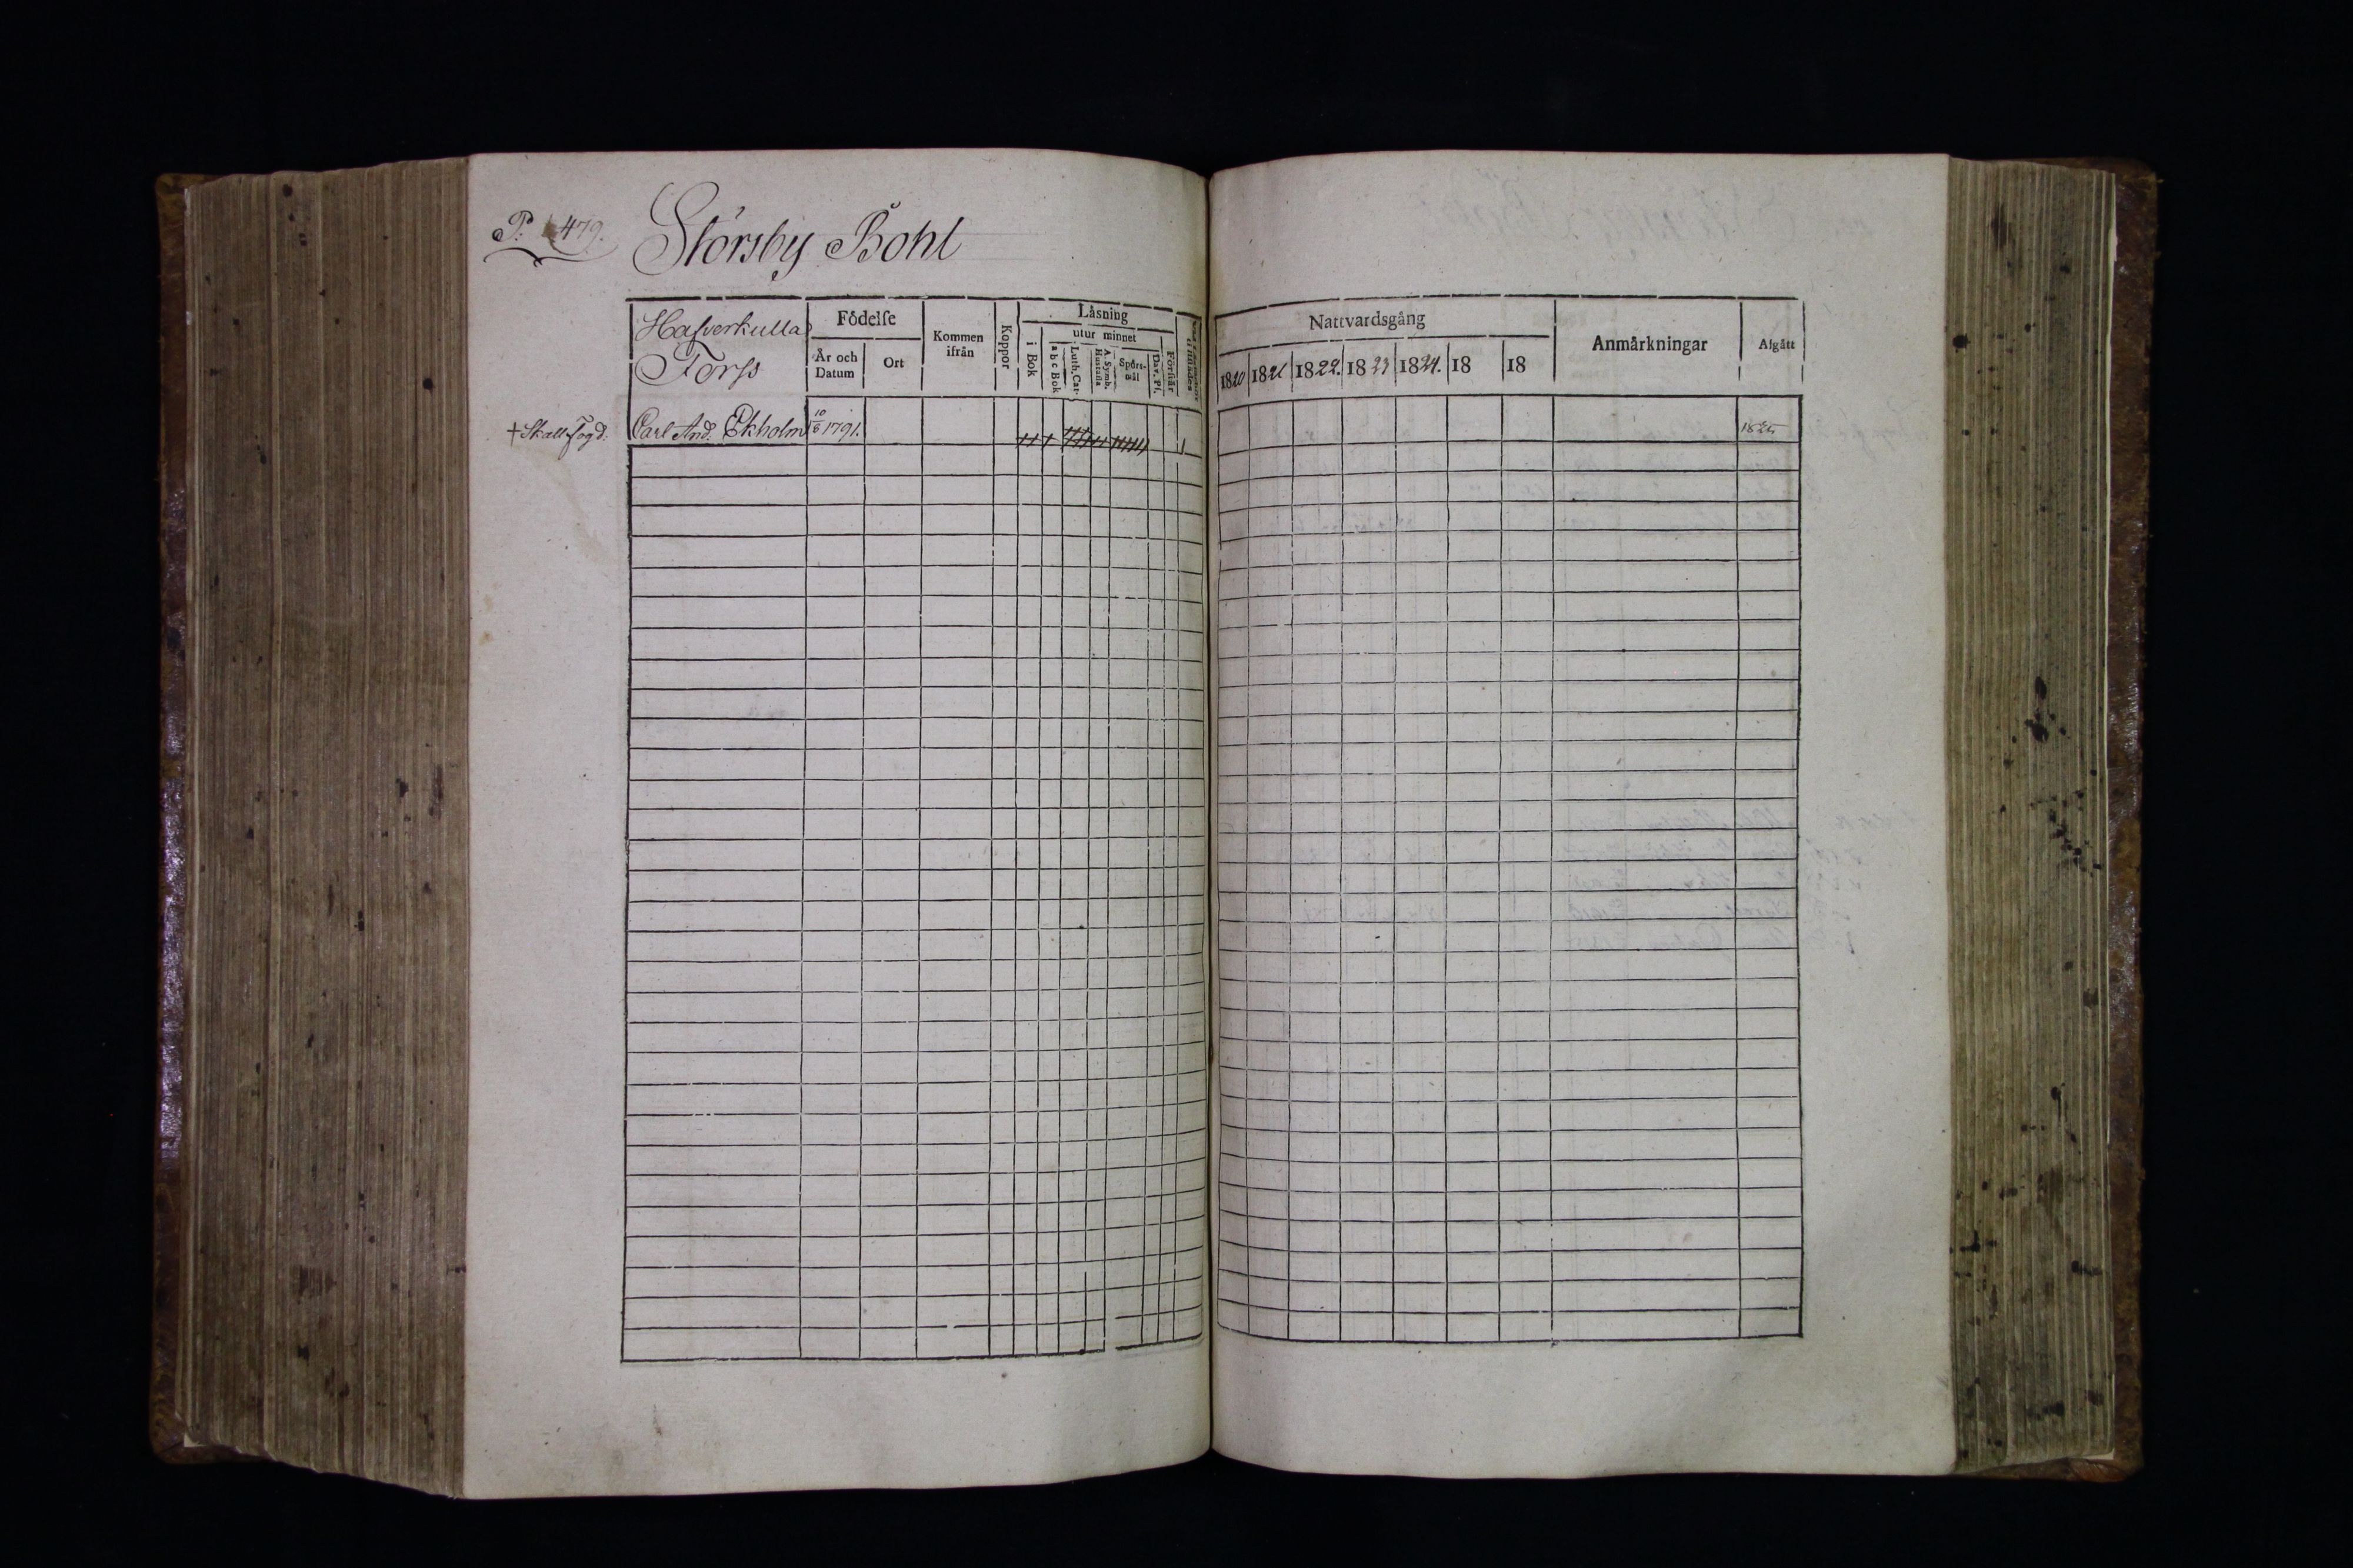 P. 479.
Störsby Bohl
Hafverkulla
Torp
Födelse
År och Datum
Ort
Kommen ifrån
Koppor
Läsning
i Bok
utur minnet
a b c Bok
Luth. Cat.
A. Symb. Hustafla
Spörs-mål
Dav. Ps.
Förstår
Nattvardsgång
1820 1821 1822. 1823 1824. 18 18
Anmärkningar
Afgått
+ Skallfogd. Carl And. Ekholm 10/6 1791. 1825